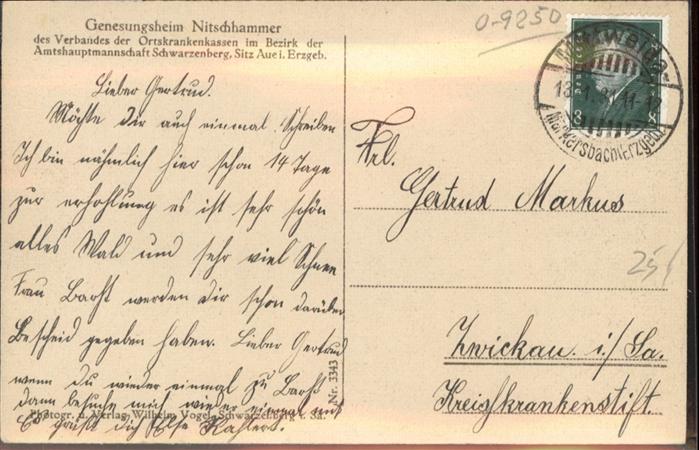 Genesungsheim Nitschhammer
des Verbandes der Ortskrankenkassen im Bezirk der
Amtshauptmannschaft Schwarzenberg, Sitz Aue i. Erzgeb.
0-9250
Lieber Gertrud.
Möchte Dir auch einmal Schreiben
Ich bin nähmlich hier schon 14 Tage
zur erhohlung es ist sehr schön
alles Wald und sehr viel Schnee
Frau Barst werden Dir schon darüber
Bescheid gegeben haben. Lieber Gertrud
wenn du wieder einmal zu Barst
dann besuche mich wieder einmal mit
Es grüßt dich Else Kahlert.
Photogr. u. Verlag Wilhelm Vogel, Schwarzenberg i. Sa.
Nr. 3343
Deutsches
8 8
11-12
Markersbach (Erzgeb.)
Frl.
Gertrud Markus
25
Zwickau i./Sa.
Kreiskrankenstift.